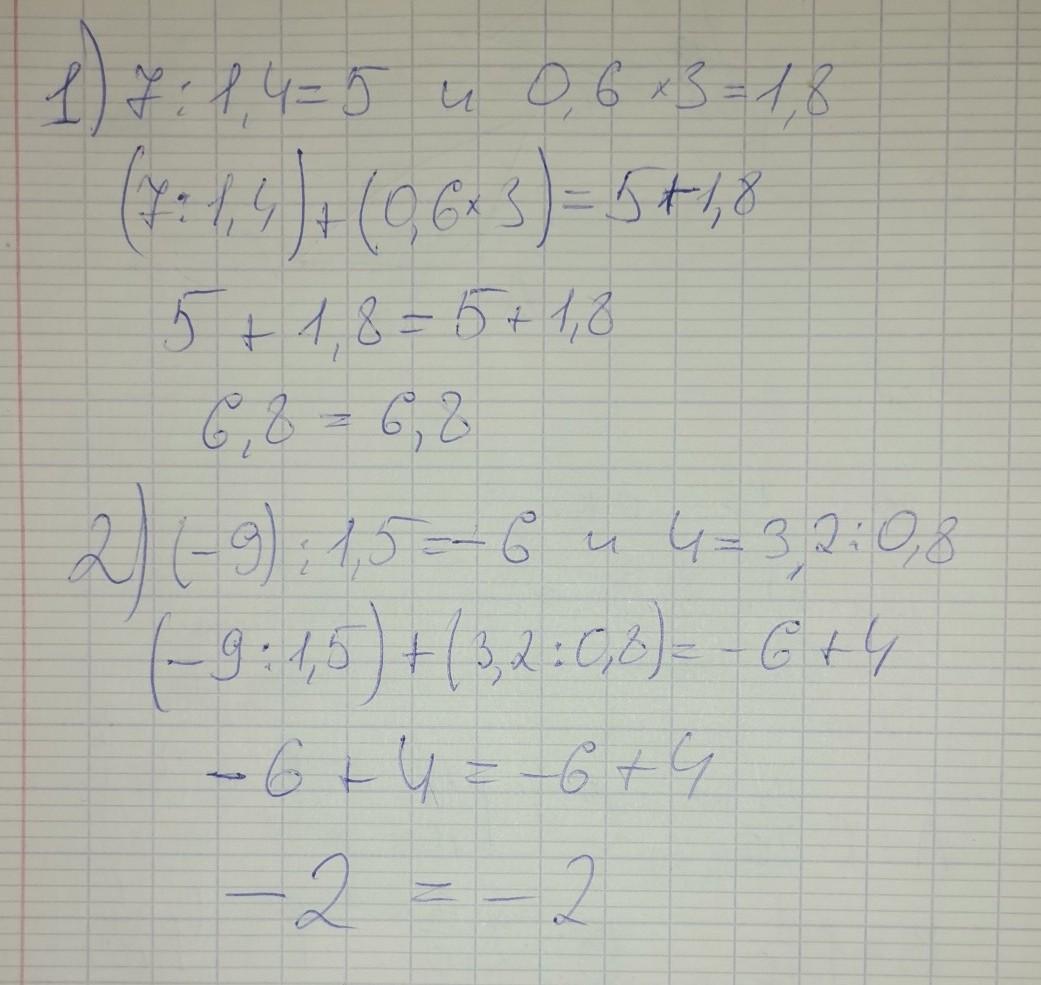 1) 7 : 1,4 = 5 и 0,6 × 3 = 1,8
(7 : 1,4) + (0,6 × 3) = 5 + 1,8
5 + 1,8 = 5 + 1,8
6,8 = 6,8
2) (-9) : 1,5 = -6 и 4 = 3,2 : 0,8
(-9 : 1,5) + (3,2 : 0,8) = -6 + 4
-6 + 4 = -6 + 4
-2 = -2